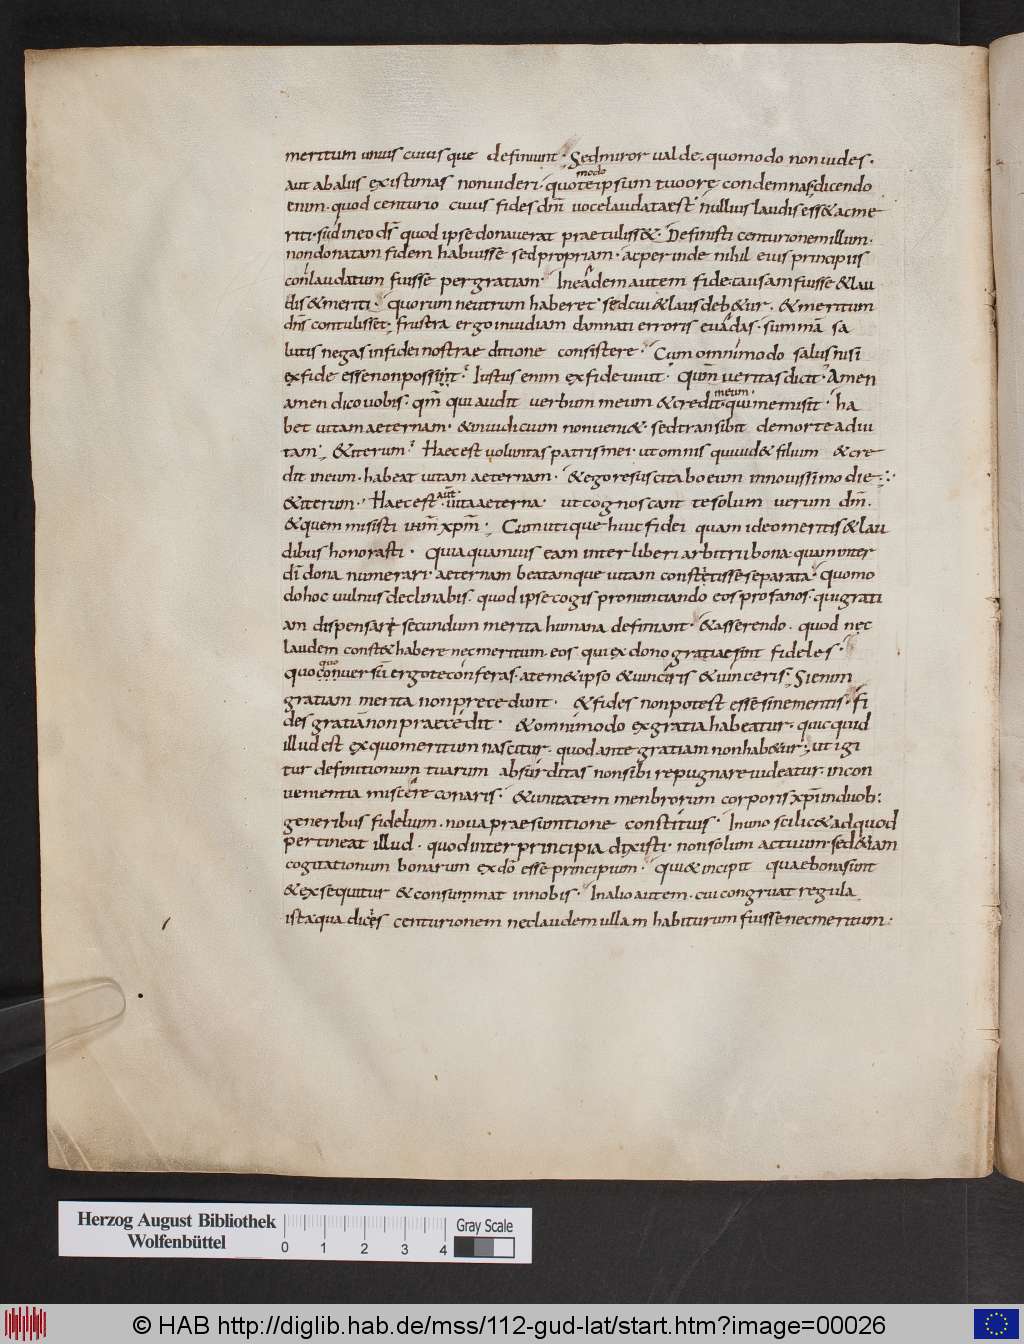 meritum uniuscuiusque definiunt. Sed miror ualde. quomodo non uides.
aut ab aliis existimas non uideri. quomodo te ipsum tuo ore condemnas; dicendo
enim. quod centurio cuius fides dn̄i uoce laudata est nullius laudis esset ac me
riti. si id in eo dn̄s quod ipse donauerat praetulisset. Definisti centurionem illum.
non donatam fidem habuisse sed propriam. ac perinde nihil eius principiis
conlaudatum fuisse per gratiam. In eadem autem fide causam fuisse & lau
dis & meriti. quorum neutrum haberet sed cui & laus deb&ur. & meritum
dn̄s contulisset. frustra ergo inuidiam damnati erroris euadas. summā sa
lutis negas in fidei nostrae ditione consistere. Cum omnimodo salus nisi
ex fide esse non possit. Iustus enim ex fide uiuit. Qum̄ ueritas dicit. Amen
amen dico uobis. qm̄ qui audit uerbum meum & credit qui me misit. ha
bet uitam aeternam. & in iudicium non ueni&. sed transibit de morte ad ui
tam; & iterum. Haec est uoluntas patris mei. ut omnis qui uid& filium & cre
dit in eum. habeat uitam aeternam. & ego resuscitabo eum in nouissimo die.
& iterum. Haec est aut̄ uita aeterna. ut cognoscant te solum uerum dm̄.
& quem misisti ihm̄ xpm̄. Cum utique huic fidei quam ideo meritis & lau
dibus honorasti. Quia quamuis eam inter liberi arbitrii bona. quam inter
dī dona numerari. aeternam beatamque uitam constet isse separata. quomo
do hoc uulnus declinabis. quod ipse cogis pronuntiando eos profanos. qui grati
am dispensari secundum merita humana definiant. & asserendo. quod nec
laudem const& habere nec meritum eos qui ex dono gratiae sint fideles.
quo conuersū ergo te conferas. a te & ipso & uinciris & uinceris. Si enim
gratiam merita non precedunt. & fides non potest esse sine meritis. fi
des gratiā non praecedit. & omnimodo ex gratia habeatur. quicquid
illud est ex quo meritum nascitur. quod ante gratiam non hab&ur; ut igi
tur definitionum tuarum absurditas non sibi repugnare uideatur. incon
uenientia miscere conaris. & unitatem menbrorum corporis xp̄i in duob;
generibus fidelium. noua praesumtione constituis. Immo scilic& ad quod
pertineat illud. quod inter principia dixisti. non solum actuum sed & iam
cogitationum bonarum ex dō esse principium. qui & incipit quae bona sunt
& exsequitur & consummat in nobis. In alio autem. cui congruat regula
ista qua dices centurionem nec laudem ullam habiturum fuisse nec meritum.
Herzog August Bibliothek
Wolfenbüttel
0 1 2 3 4
Gray Scale
© HAB http://diglib.hab.de/mss/112-gud-lat/start.htm?image=00026